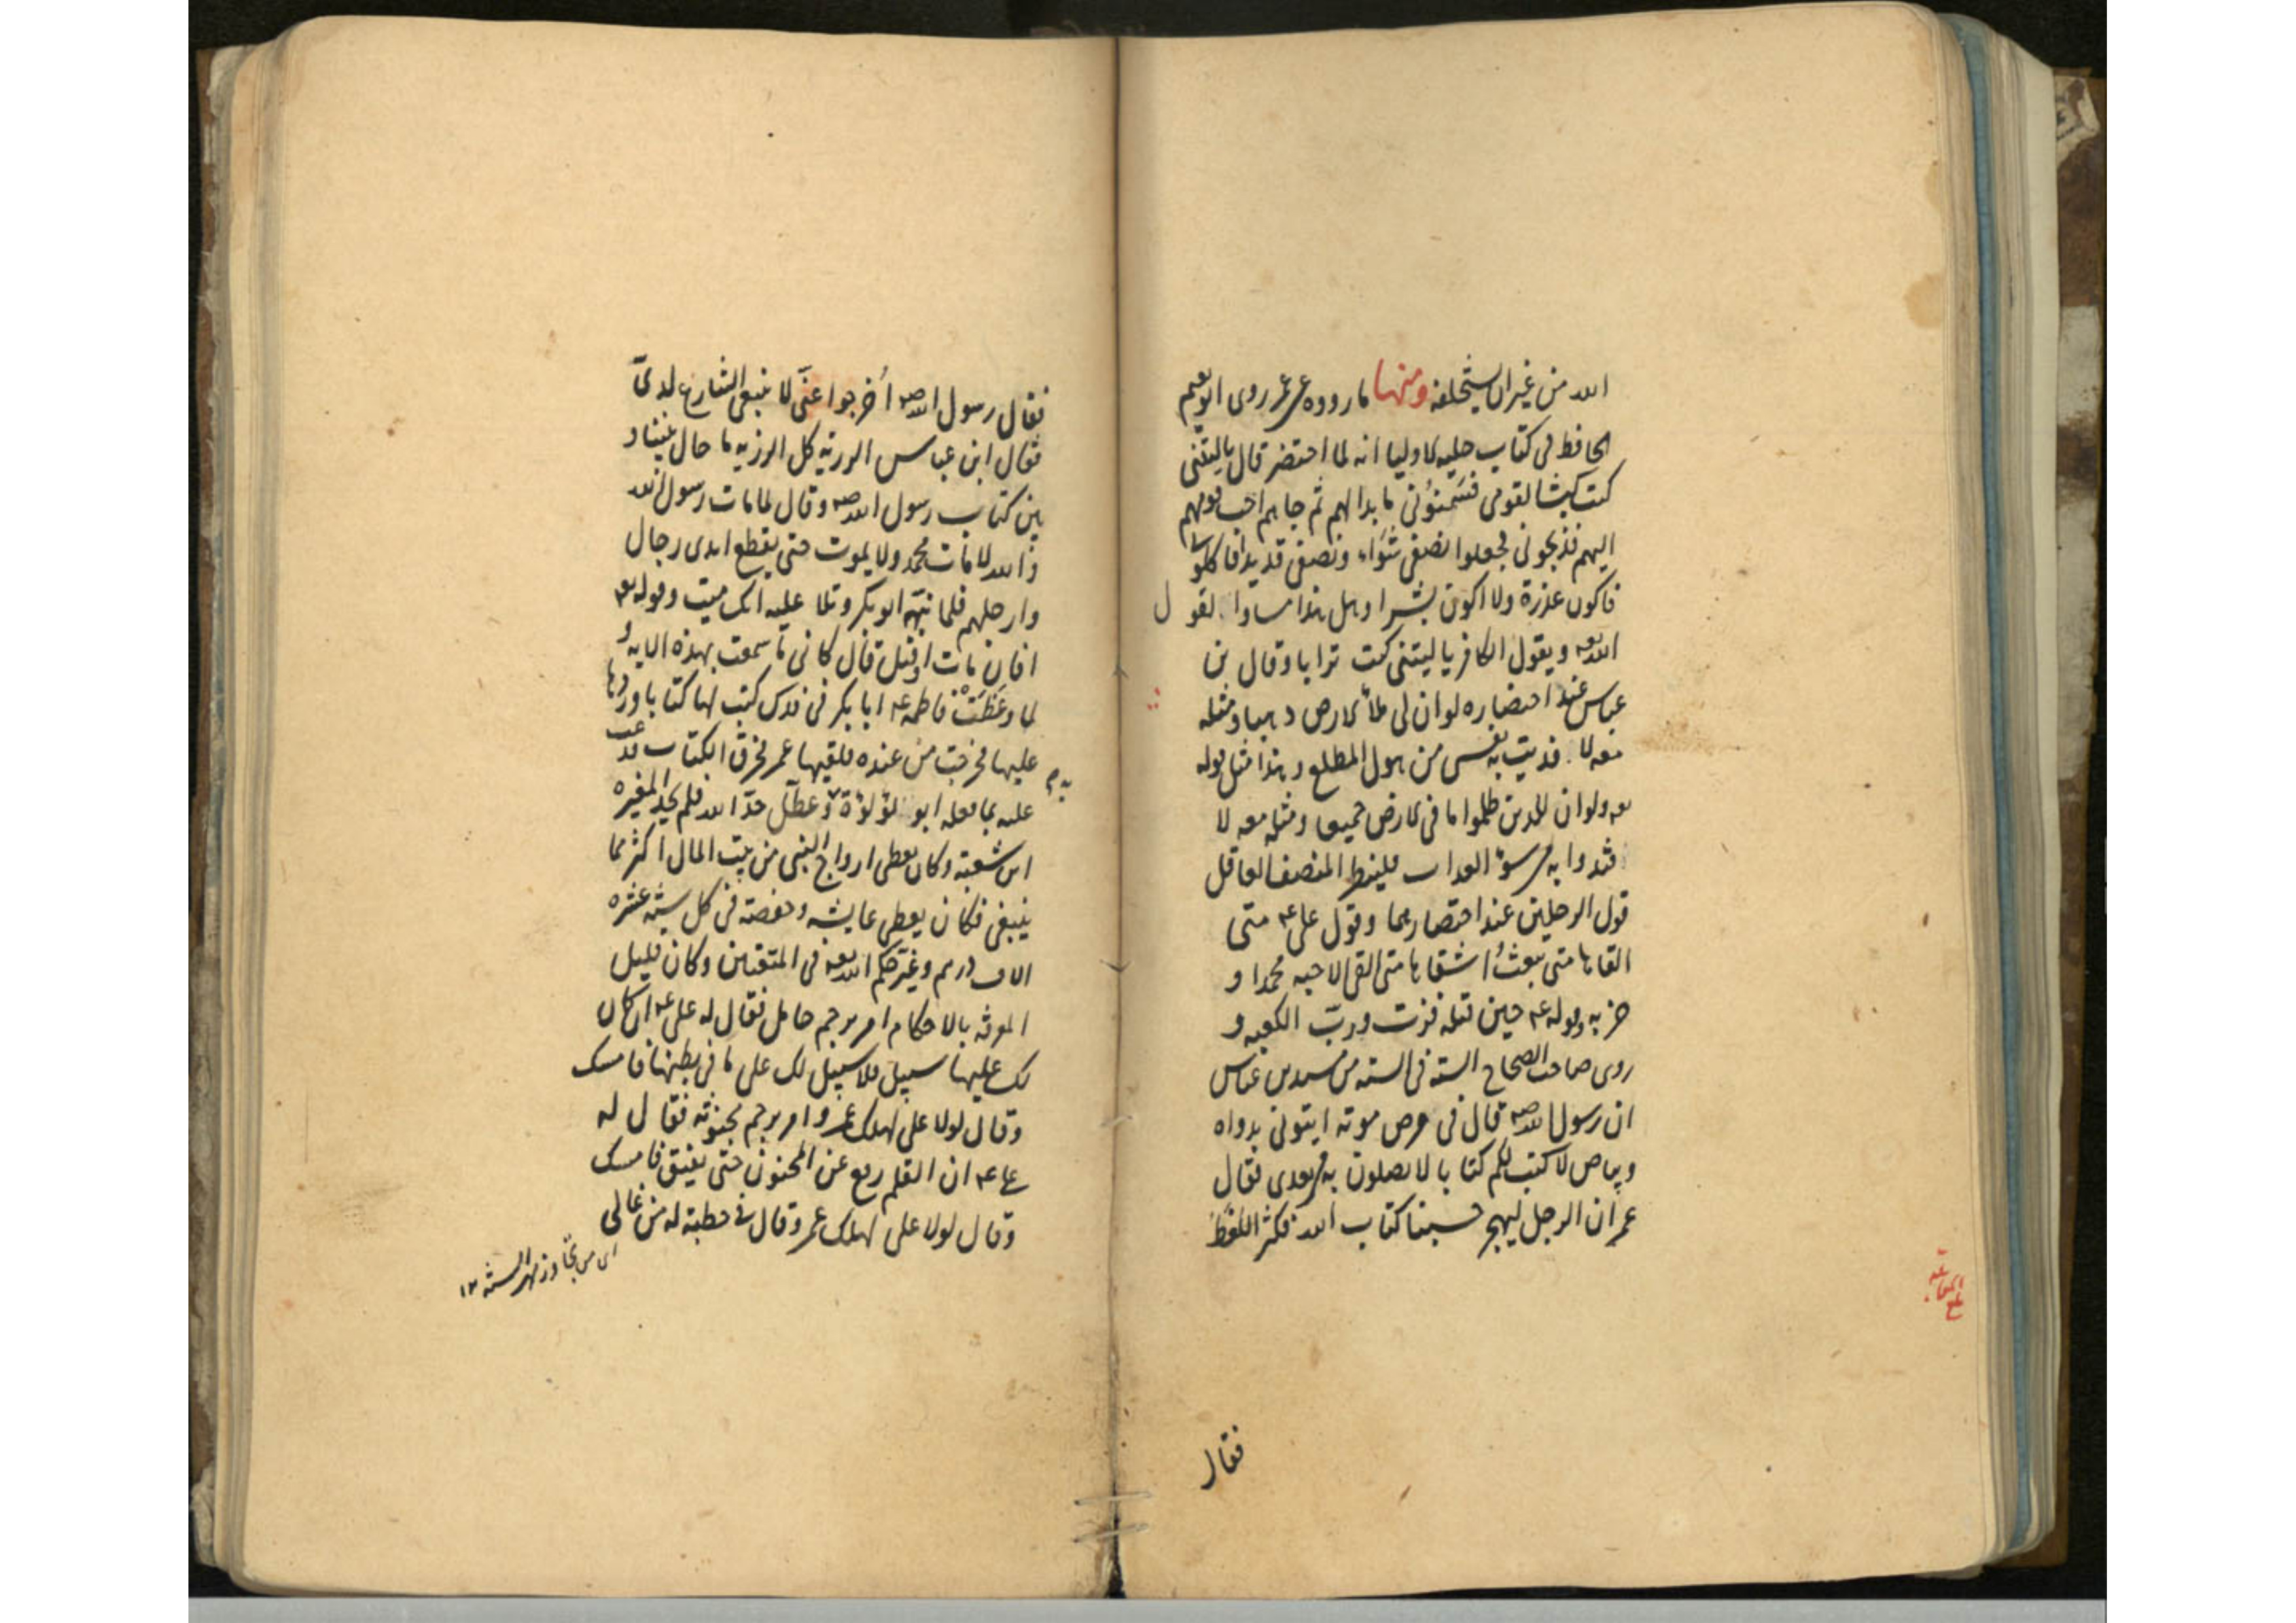 الله من غير ان يستخلفه ومنها ما رووه عن عمر روى ابو نعيم
الحافظ فى كتاب حليه الاوليا انه لما احتضر قال يا ليتنى
كنت كبشا لقومى فسَمنوُنى ما بدا لهم ثم جاهم احب قومهم
اليهم فذبحونى فجعلوا نصفى شَوَاء ونصفى قديدا فاكلونى
فاكون عذرة ولا اكون بشرا وهل هذا مساو لقول
الله تعه ويقول الكافر يا ليتنى كنت ترابا وقال بن
عباس عند احتضاره لو ان لى ملأ الارض ذهبا ومثله
معه لا فديت به نفسى من هول المطلع وهذا مثل قوله
تعه ولو ان للذين ظلموا ما فى الارض جميعا ومثله معه لا
فتدوا به من سؤ العذاب فلينظر المنصف العاقل
قول الرجلين عند احتضارهما وقول على عه متى
القاها متى يبعثُ اشقاها متى القى الاحبه محمدا و
حزبه وقوله عه حين قتله فزت وربّ الكعبه و
روى صاحب الصحاح السته فى السته من مسند بن عباس
ان رسول الله صه قال فى مرض موته ايتونى بدواه
وبياض لاكتب لكم كتابا لا تضلون به من بعدى فقال
عمر ان الرجل ليهجر حسبنا كتاب الله فكثر اللغط
فقال
فقال رسول الله صه اُخرجوا عنّى لا ينبغى التنازع لدىّ
فقال ابن عباس الرزيه كل الرزيه ما حال بيننا و
بين كتاب رسول الله صه وقال لما مات رسول الله
والله لا مات محمد ولا يموت حتى يقطع ايدى رجال
وارجلهم فلما نبّهه ابو بكر وتلا عليه انك ميت وقوله تعه
افان مات او قتل قال كانى ما سمعت بهذه الايه و
لما وعَظَتْ فاطمه عه ابا بكر فى فدك كتب لها كتابا وردها
عليها فخرجت من عنده فلقيها عمر فخرق الكتاب فدعت
عليه بما فعله ابو لؤلؤة وعطّل حدّ الله فلم يحد المغيره
ابن شعبة وكان يعطى ازواج النبى من بيت المال اكثر مما
ينبغى فكان يعطى عايشه وحفصة فى كل سنه عشره
الاف درهم وغيّر حكم الله تعه فى المتعتين وكان قليل
المعرفه بالاحكام امر برجم حامل فقال له على عه ان كان
لك عليها سبيل فلا سبيل لك على ما فى بطنها فامسك
وقال لولا على لهلك عمر وامر برجم مجنونه فقال له
على عه ان القلم رفع عن المجنون حتى يفيق فامسك
وقال لولا على لهلك عمر وقال فى خطبة له من غالى
اى من تجاوز مهر السنه ١٢